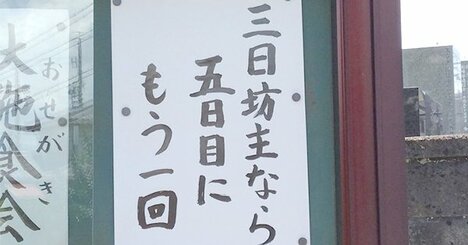 三日坊主なら
五日目に
もう一回
おせがき
大施食会